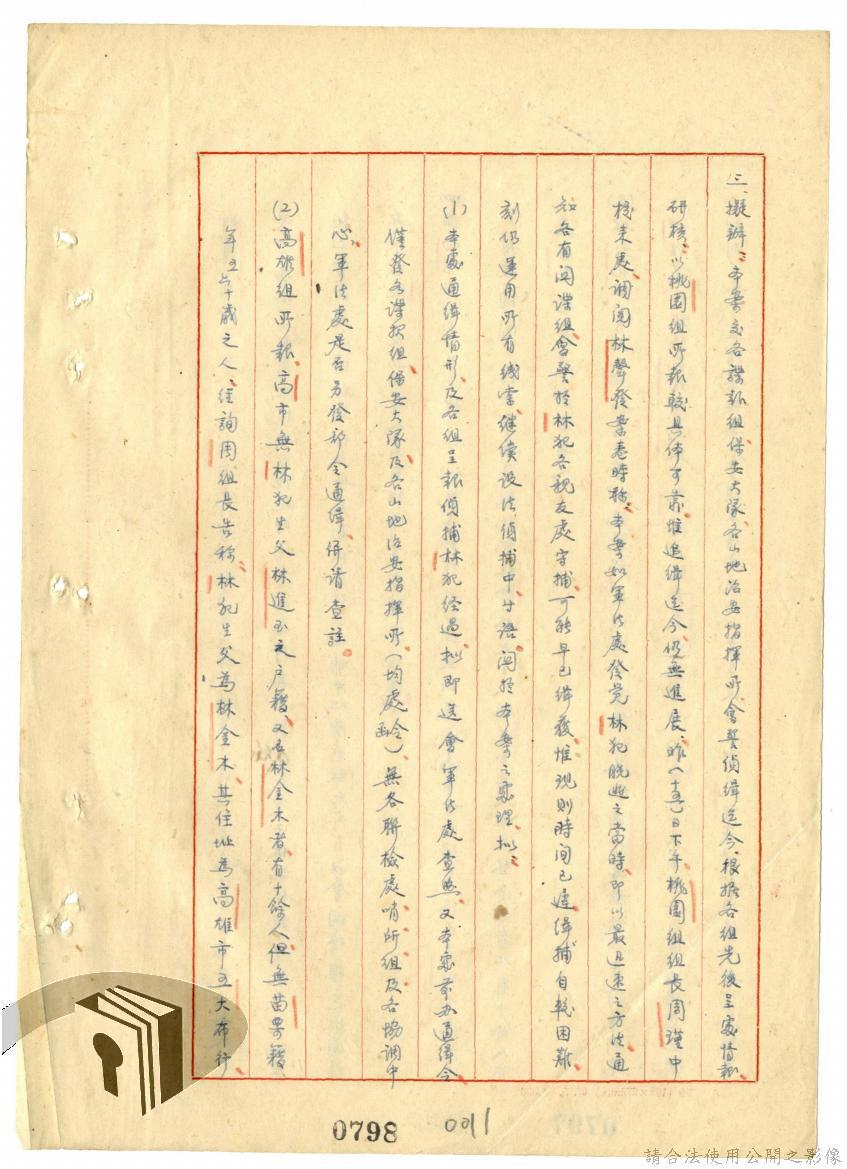 三、擬辦：本案交各諜報組、保安大隊、各山地治安指揮所、會警偵緝迄今、根據各組先後呈處情報
研核、以桃園組所報較具体可靠、惟追緝迄今、仍無進展、昨（　）日下午桃園組組長周瑾中
校來處、調閱林聲發案卷時称：本案如軍法處發覚林犯脫逃之當時、即以最迅速之方法通
知各有関諜組、會警於林犯各親友處守捕、可能早已緝獲、惟現則時间已遲、緝捕自較困难、
刻仍運用所有线索、继续設法偵捕中等語、関於本案之處理、拟：
(1)本處通緝情形、及各組呈報偵捕林犯经過、拟即送會軍法處查照、又本處前办通緝令
僅發各諜報組、保安大隊及各山地治安指揮所（均處令）、無各聯檢處、哨所組及各協調中
心、軍法處是否另發部令通緝、併請查註。
(2)高雄組所報、高市無林犯生父林進玉之户籍、又名林金木者、有十餘人、但無苗栗籍、
年五六十歲之人、经詢周組長告称、林犯生父為林金木、其住址為高雄市五大布行、
0798
001
請合法使用公開之影像